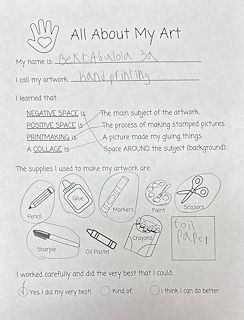 All About My Art
My name is: 3a
I call my artwork: hand printing
I learned that:
NEGATIVE SPACE is The main subject of the artwork.
POSITIVE SPACE is The process of making stamped pictures.
PRINTMAKING is A picture made my gluing things.
A COLLAGE is Space AROUND the subject (background).
The supplies I used to make my artwork are:
Pencil Glue Markers Paint Scissors
Sharpie Oil Pastel Crayons foil paper
I worked carefully and did the very best that I could.
Yes, I did my very best! Kind of. I think I can do better.